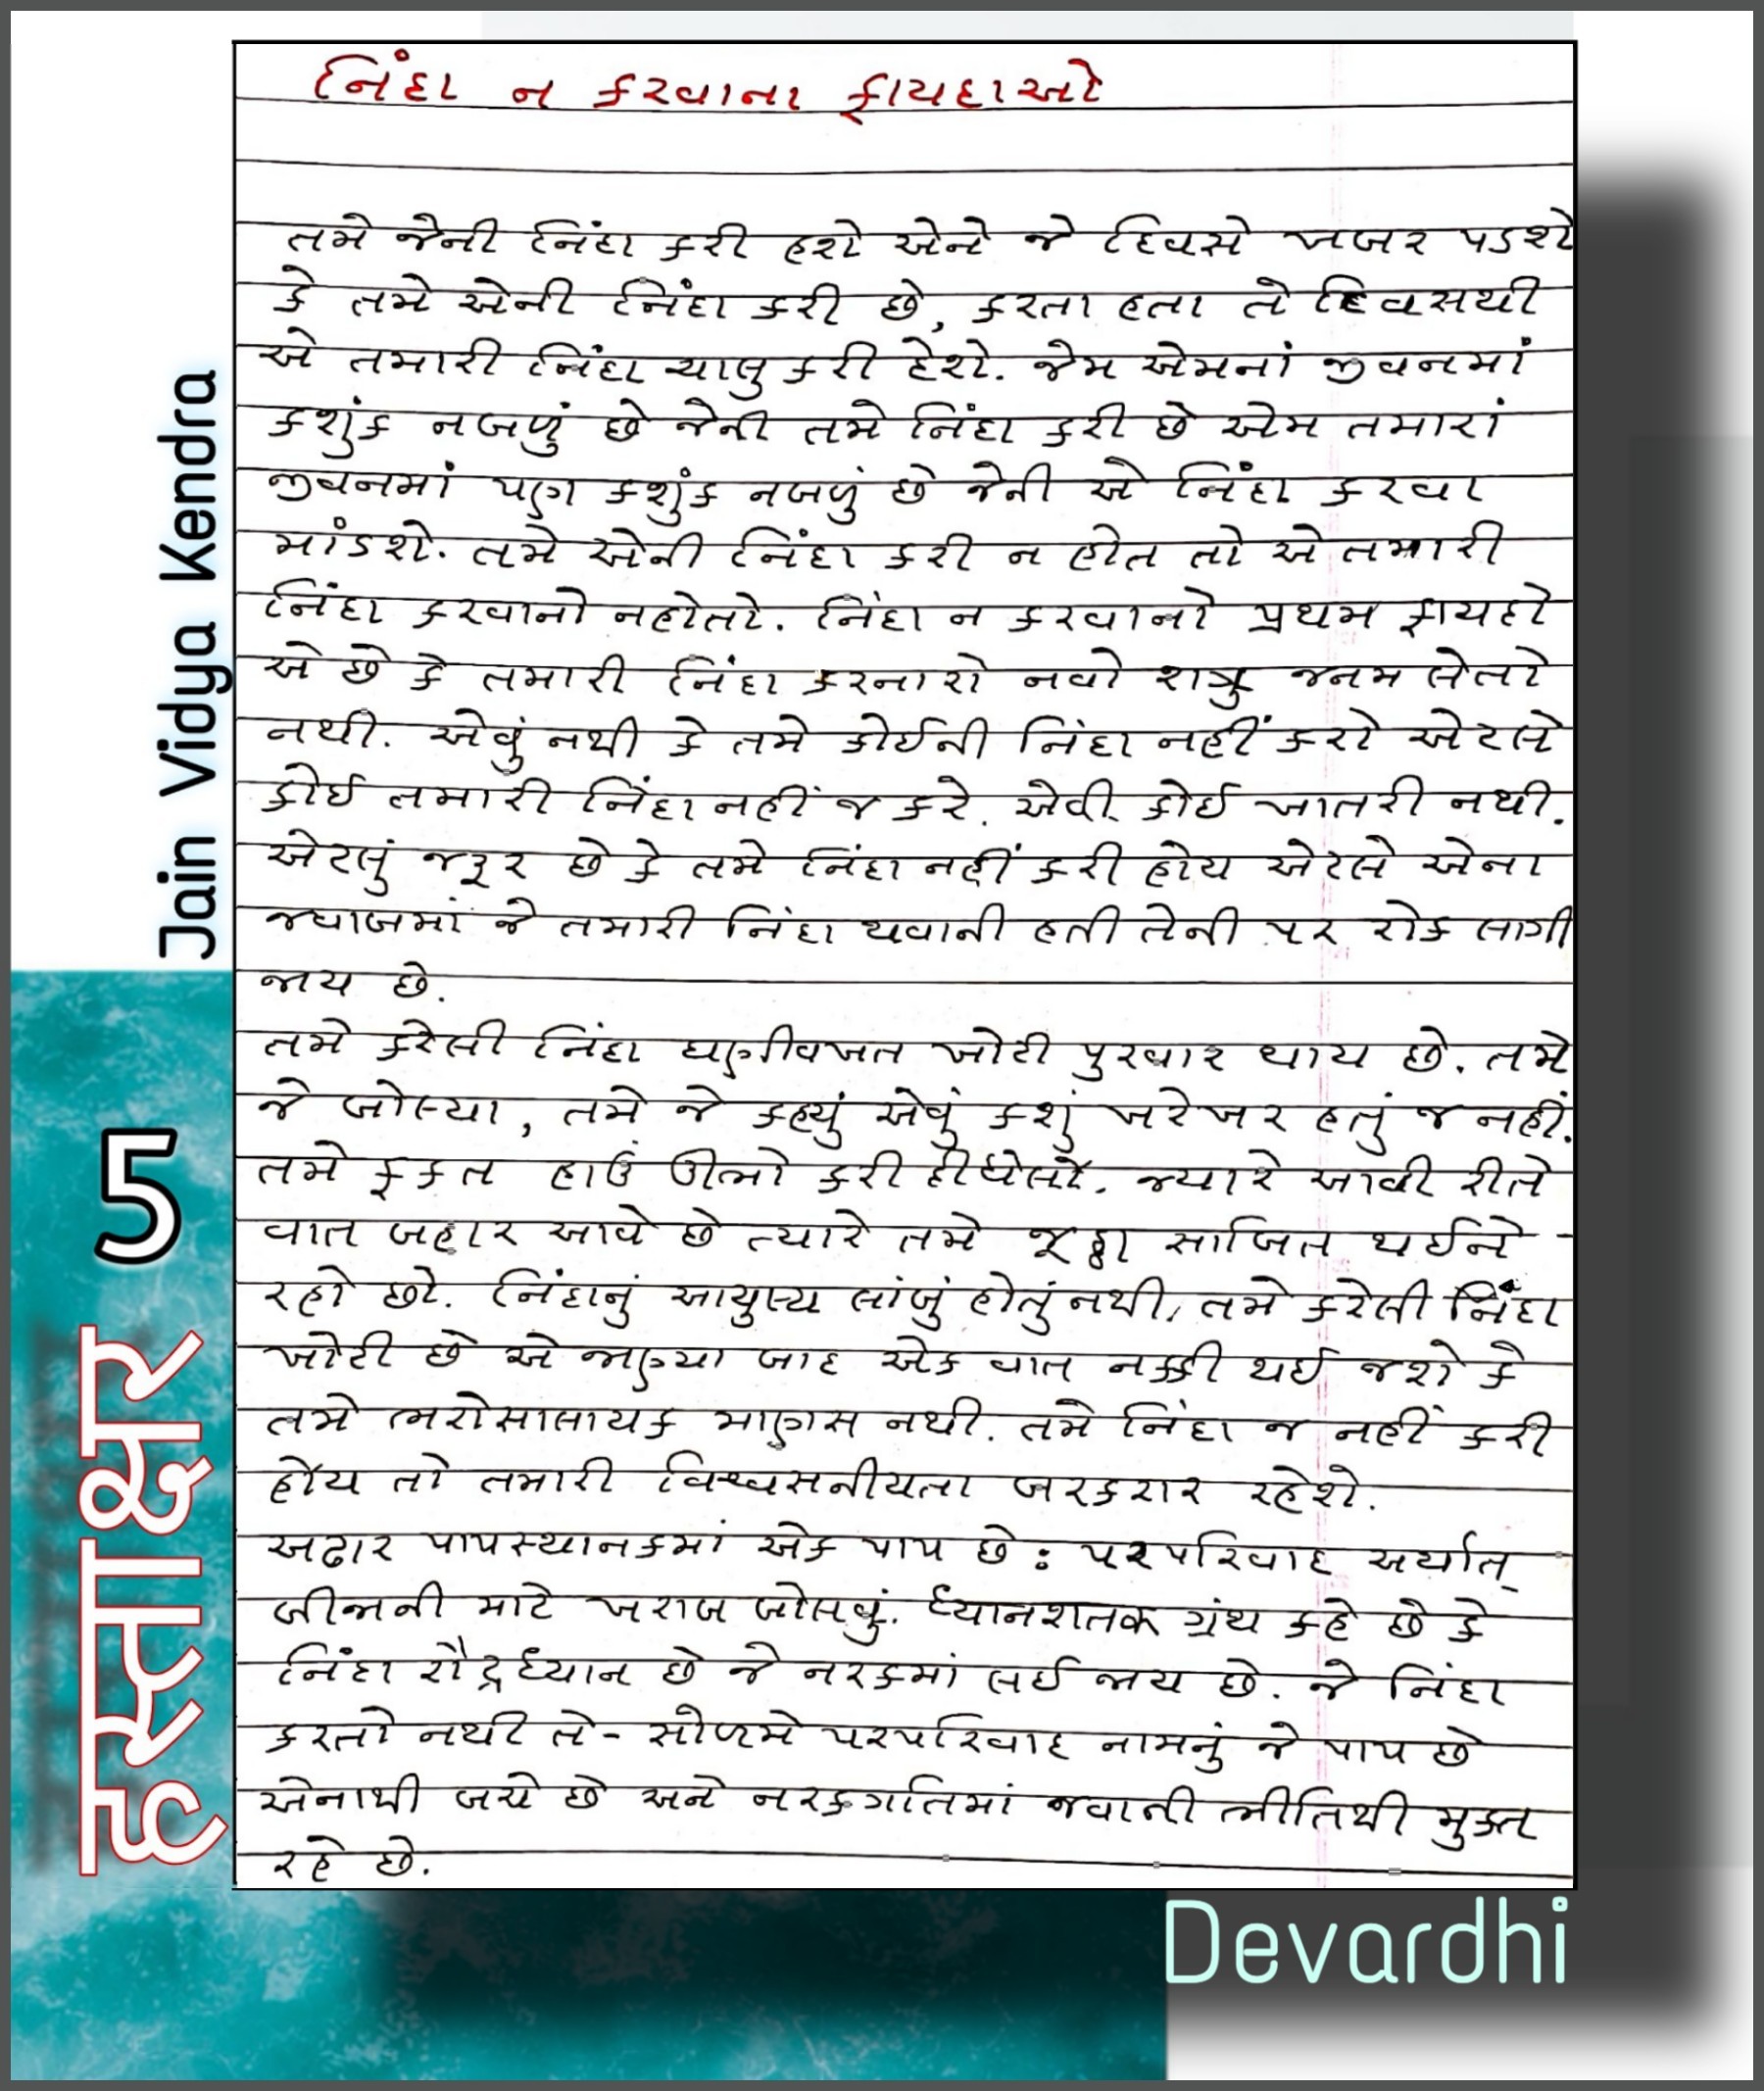 નિંદા ન કરવાના ફાયદાઓ
તમે જેની નિંદા કરી હશે એને જે દિવસે ખબર પડશે
કે તમે એની નિંદા કરી છે, કરતા હતા તે દિવસથી
એ તમારી નિંદા ચાલુ કરી દેશે. જેમ એમનાં જીવનમાં
કશુંક નબળું છે જેની તમે નિંદા કરી છે એમ તમારાં
જીવનમાં પણ કશુંક નબળું છે જેની એ નિંદા કરવા
માંડશે. તમે એની નિંદા કરી ન હોત તો એ તમારી
નિંદા કરવાનો નહોતો. નિંદા ન કરવાનો પ્રથમ ફાયદો
એ છે કે તમારી નિંદા કરનારો નવો શત્રુ જનમ લેતો
નથી. એવું નથી કે તમે કોઈની નિંદા નહીં કરો એટલે
કોઈ તમારી નિંદા નહીં જ કરે. એવી કોઈ ખાતરી નથી.
એટલું જરૂર છે કે તમે નિંદા નહીં કરી હોય એટલે એના
જવાબમાં જે તમારી નિંદા થવાની હતી તેની પર રોક લાગી
જાય છે.
તમે કરેલી નિંદા ઘણીવખત ખોટી પુરવાર થાય છે. તમે
જે બોલ્યા, તમે જે કહ્યું એવું કશું ખરેખર હતું જ નહીં.
તમે ફકત હાઉ ઊભો કરી દીધેલો. જ્યારે આવી રીતે
વાત બહાર આવે છે ત્યારે તમે જૂઠ્ઠા સાબિત થઈને
રહો છો. નિંદાનું આયુષ્ય લાંબું હોતું નથી, તમે કરેલી નિંદા
ખોટી છે એ જાણ્યા બાદ એક વાત નક્કી થઈ જશે કે
તમે ભરોસાલાયક માણસ નથી. તમે નિંદા જ નહીં કરી
હોય તો તમારી વિશ્વસનીયતા બરકરાર રહેશે.
અઢાર પાપસ્થાનકમાં એક પાપ છે : પરપરિવાદ અર્થાત્
બીજાની માટે ખરાબ બોલવું. ધ્યાનશતક ગ્રંથ કહે છે કે
નિંદા રૌદ્રધ્યાન છે જે નરકમાં લઈ જાય છે. જે નિંદા
કરતો નથી તે - સોળમે પરપરિવાદ નામનું જે પાપ છે
એનાથી બચે છે અને નરકગતિમાં જવાની ભીતિથી મુક્ત
રહે છે.
Jain Vidya Kendra
हस्ताक्षर 5
Devardhi